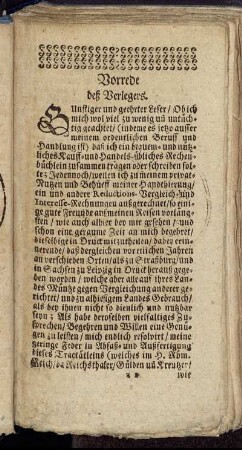 Vorrede
deß Verlegers.
GUnstiger und geehrter Leser / Ob ich
mich wol viel zu wenig uñ untüch-
tig geachtet / (indeme es jetzo ausser
meinem ordentlichen Beruff und
Handlung ist) daß ich ein bequem- und nütz-
liches Kauff- und Handels-übliches Rechen-
büchlein zusammen tragen oder schreiben sol-
te; Jedennoch / weilen ich zu meinem privat-
Nutzen und Behueff meiner Handthierung /
ein und andere Reductions-Vergleich- und
Interesse-Rechnungen ausgerechnet / so eini-
ge gute Freunde auf meinen Reisen vorlängs-
ten / wie auch allhier bey mir gesehen / und
schon eine geraume Zeit an mich begehret /
dieselbige in Druck mitzutheilen / dabey erin-
nerende / daß dergleichen vor etlichen Jahren
an verschieden Orten / als zu Straßburg / und
in Sachsen zu Leipzig in Druck heraus gege-
ben worden / welche aber alle auf ihres Lan-
des Müntze gegen Vergleichung anderer ge-
richtet / und zu alhiesigem Landes Gebrauch /
als bey ihnen nicht so dienlich und nutzbar
seyn; Als habe derselben vielfältiges Zu-
sprechen / Begehren und Willen eine Genü-
gen zu leisten / mich endlich resolvirt / meine
geringe Feder in Abfaß- und Ausfertigung
dieses Tractätleins (welches im H. Röm.
Reich / da Reichsthaler / Gülden uñ Kreutzer /
wie